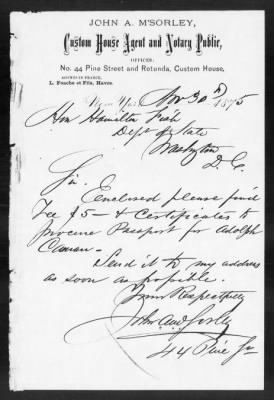 JOHN A. M'SORLEY,
Custom House Agent and Notary Public,
OFFICES:
No. 44 Pine Street and Rotunda, Custom House,
AGENTS IN FRANCE,
L. Fosche et Fils, Havre.
New York, Nov 30th 1875
Hon Hamilton Fish
Dept of State
Washington
D. C.
Sir. Enclosed please find
Fee $5 — & Certificates to
procure Passport for Adolph
Send it to my address
as soon as possible.
Yours Respectfully
John A McSorley
44 Pine St